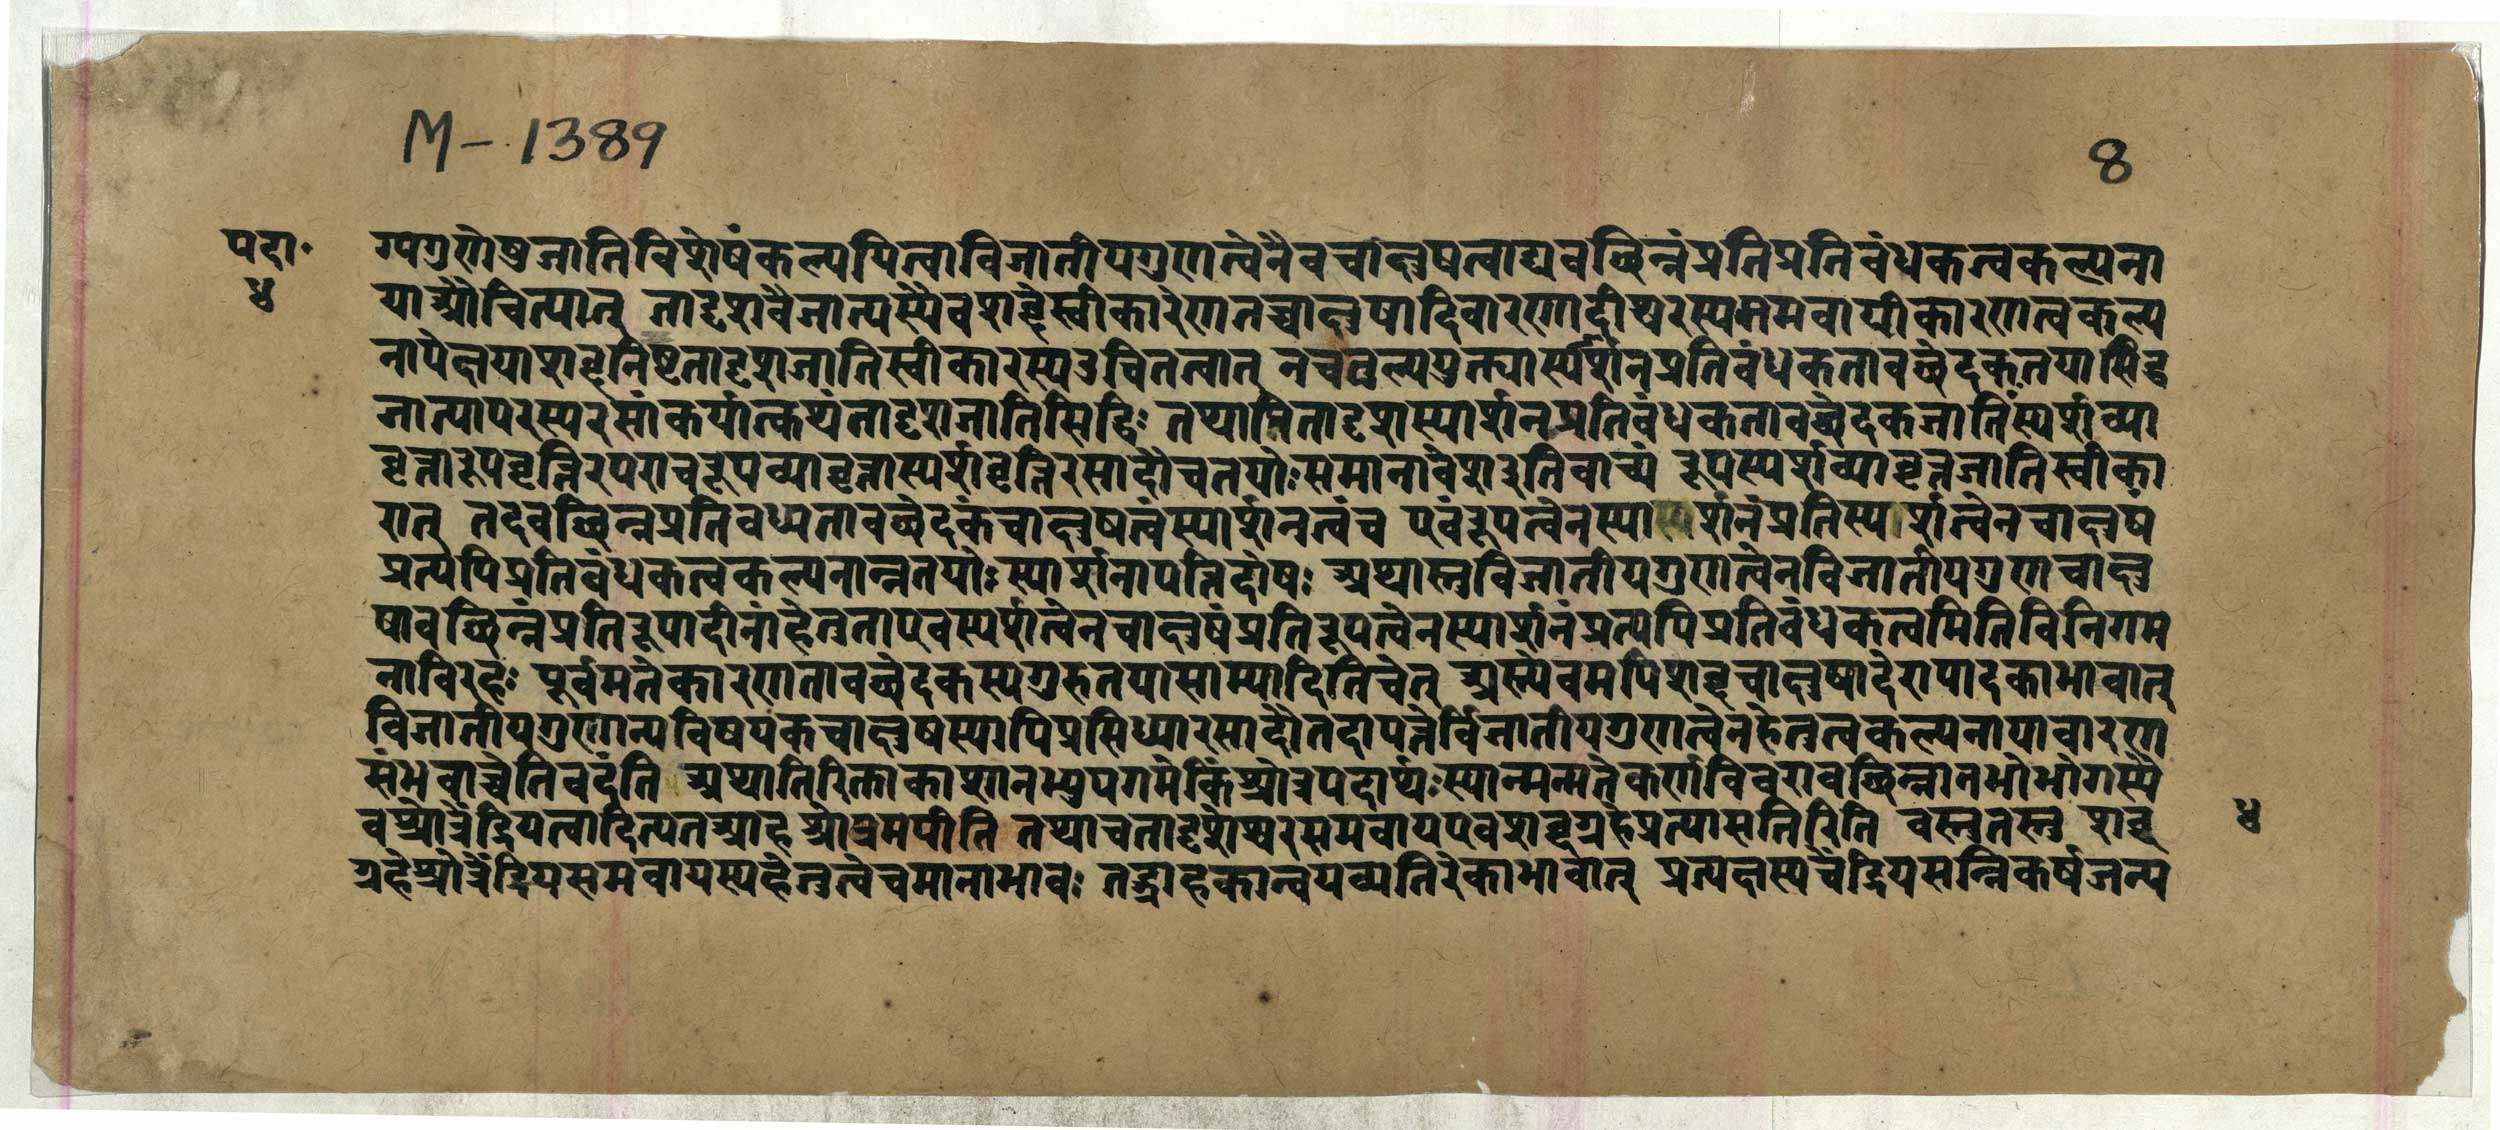 M - 1389
8
पदा॰
४
ग्यगुणेषुजातिविशेषंकल्पयित्वाविजातीयगुणत्वेनैवचाक्षुषत्वाद्यवछिन्नंप्रतिप्रतिबंधकत्वकल्पना
याऔचित्यात् तादृशवैजात्यस्यैवशब्देस्वीकारेणतच्चाक्षुषादिवारणादीश्वरस्यसमवायीकारणत्वकल्प
नापेक्षयाशब्दनिष्टतादृशजातिस्वीकारस्यउचितत्वात् नचतुल्ययुक्त्यास्पर्शनप्रतिबंधकतावछेदकतयासिद्ध
जात्यापरस्परसांकर्यात्कथंतादृशजातिसिद्धिः तथापितादृशस्पार्शनप्रतिबंधकतावछेदकजातिस्पर्शव्या
वृत्तारूपवृत्तिरपराचरूपव्यावृत्तास्पर्शवृत्तिरसादौचतयोःसमानावेशइतिवाच्यं रूपस्पर्शव्यावृत्तजातिस्वीका
रात् तदवछिन्नप्रतिबध्यतावछेदकंचाक्षुषत्वंस्पार्शनत्वंच एवंरूपत्वेनस्पार्शनंप्रतिस्पर्शत्वेनचाक्षुषं
प्रत्यपिप्रतिबंधकत्वकल्पनान्नतयोः स्पार्शनापत्तिर्दोषः अथास्तुविजातीयगुणत्वेनविजातीयगुणचाक्षु
षावछिन्नंप्रतिरूपादीनांहेतुताएवस्पर्शत्वेनचाक्षुषंप्रतिरूपत्वेनस्पार्शनंप्रत्यपिप्रतिबंधकत्वमितिविनिगम
नाविरहः पूर्वमतेकारणतावछेदकस्यगुरुतयासाम्यादितिचेत् अस्त्येवमपिशब्दचाक्षुषादेरापादकाभावात्
विजातीयगुणान्यविषयकचाक्षुषस्यापिप्रसिध्यारसादौतदापत्तेर्विजातीयगुणत्वेनहेतुत्वकल्पनायावारणा
संभवाच्चेतिवदंति अथातिरिक्ताकाशानभ्युपगमेकिंश्रोत्रपदार्थःस्यान्मन्मतेकर्णविवरावछिन्नानभोभोगस्यै
वश्रोत्रेंद्रियत्वादित्यतआह श्रोत्रमपीति तथाचतादृशेश्वरसमवायएवशब्दग्रहेप्रत्यासतिरिति वस्तुतस्तु शब्द
ग्रहेश्रोत्रेंद्रियसमवायस्यहेतुत्वेचमानाभावः तद्ग्राहकान्वयव्यतिरेकाभावात् प्रत्यक्षस्यचेंद्रियसन्निकर्षजन्य
४